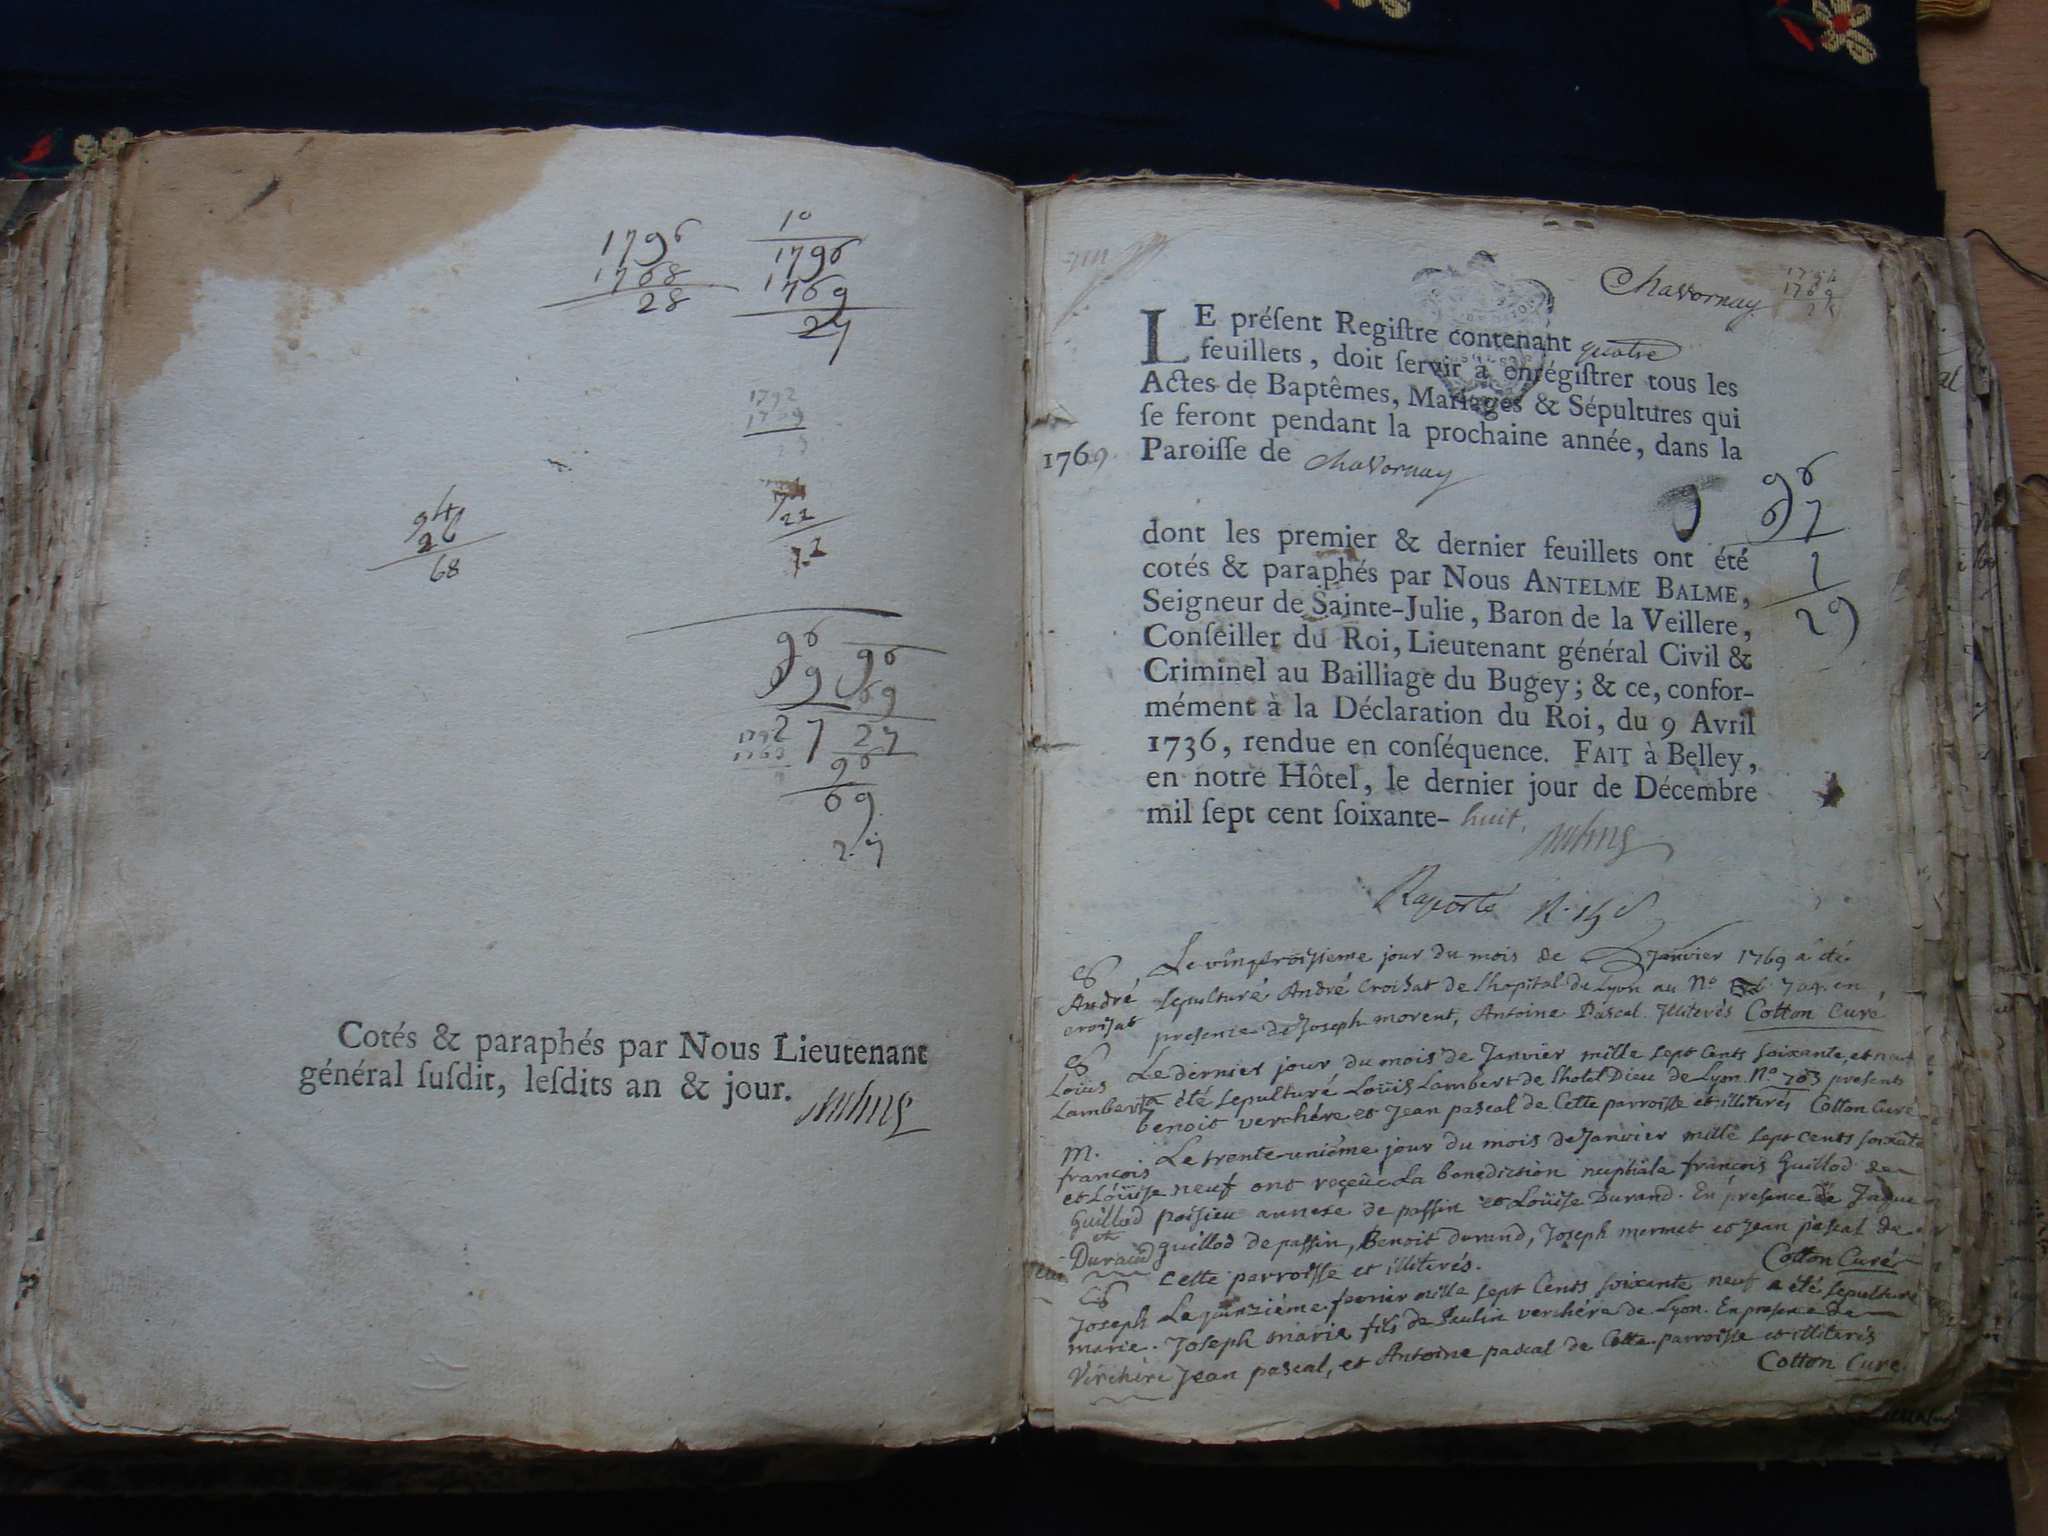 1796
1768
28
10
1796
1769
27
1792
1769
94
26
68
22
96
69
7
96
69
27
1792
1769
96
69
27
Cotés & paraphés par Nous Lieutenant
général ſuſdit, leſdits an & jour.
Chavornay
1769
LE préſent Regiſtre contenant quatre
feuillets, doit ſervir à enrégiſtrer tous les
Actes de Baptêmes, Mariages & Sépultures qui
ſe feront pendant la prochaine année, dans la
1769. Paroiſſe de Chavornay
96
67
1
29
dont les premier & dernier feuillets ont été
cotés & paraphés par Nous ANTELME BALME,
Seigneur de Sainte-Julie, Baron de la Veillere,
Conſeiller du Roi, Lieutenant général Civil &
Criminel au Bailliage du Bugey; & ce, confor-
mément à la Déclaration du Roi, du 9 Avril
1736, rendue en conſéquence. FAIT à Belley,
en notre Hôtel, le dernier jour de Décembre
mil ſept cent ſoixante- huit.
Raporté
S
André
croisat
Le vingtroisieme jour du mois de Janvier 1769 a été
sepulturé André Croisat de l'hopital de Lyon au No 704. en
presence de Joseph morent, Antoine Pascal. Illiterés Cotton Curé
S
Loüis
Lambert
Le dernier jour du mois de Janvier mille sept cents soixante et neuf
a été sepulturé Loüis Lambert de l'hotel Dieu de Lyon. No 703 presents
benoit verchére et Jean pascal de Cette parroisse et illiterés Cotton Curé
M.
françois
et Loüise
Guillod
et
Durand
Le trente-uniéme jour du mois de Janvier mille sept cents soixante
neuf ont reçeüe La benediction nuptiale françois Guillod de
poisieu annexe de passin et Loüise Durand. En presence de Jaque
guillod de passin, Benoit durand, Joseph mermet et Jean pascal de
cette parroisse et illiterés. Cotton Curé
S
Joseph
marie
Verchére
Le quinziéme fevrier mille sept Cents soixante neuf a été sepulturé
Joseph marie fils de Paulin verchére de Lyon. En presence de
Jean pascal, et Antoine pascal de Cette parroisse et illiterés
Cotton Curé